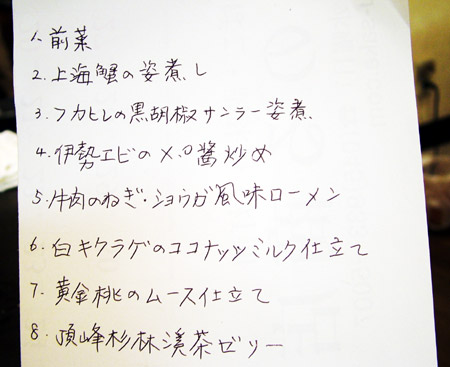 1. 前菜
2. 上海蟹の姿煮し
3. フカヒレの黒胡椒サンラー姿煮
4. 伊勢エビのXO醤炒め
5. 牛肉のねぎ・ショウガ風味ローメン
6. 白キクラゲのココナッツミルク仕立て
7. 黄金桃のムース仕立て
8. 頂峰杉林渓茶ゼリー